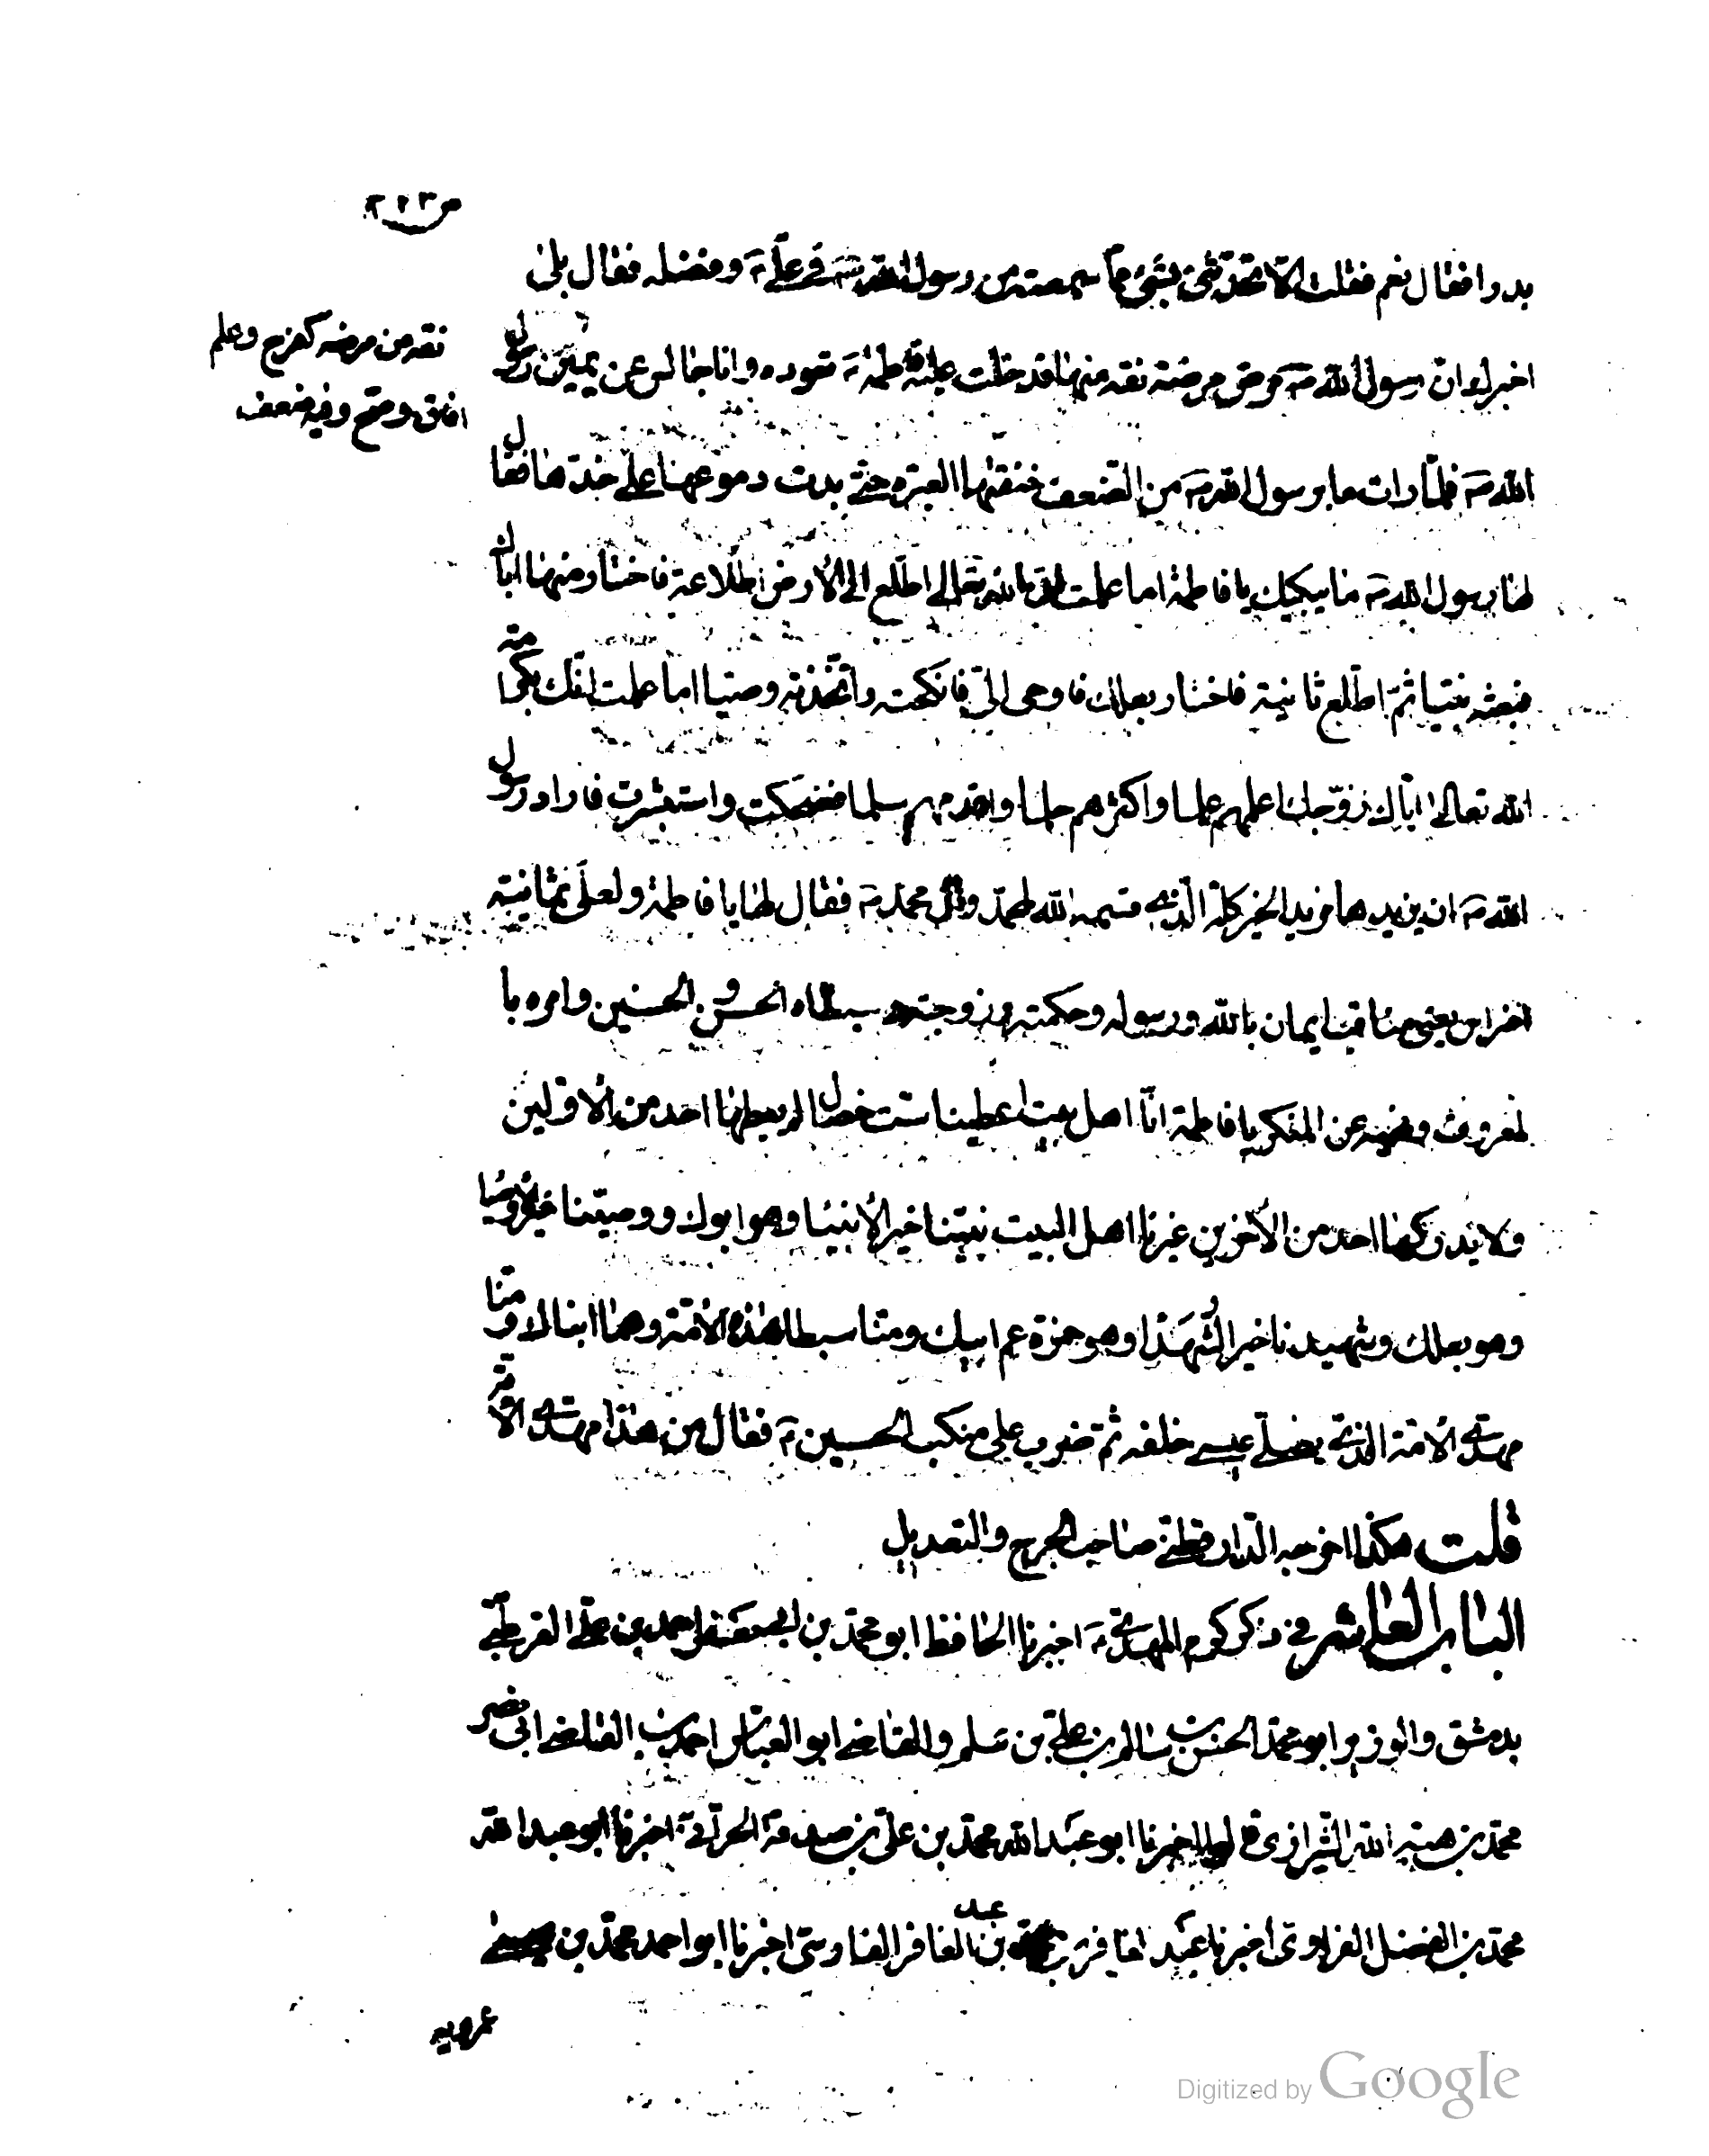 ص ٢١٣
بدرا فقال نعم فقلت الا تحدثني بشئ مما سمعته من رسول الله ص في علي ع وفضله فقال بلى
اخبرك ان رسول الله ص مرض مرضة نقه منها فدخلت عليه فاطمة ع تعوده وانا جالس عن يمين رسول
نقه من مرضه كفرح وعلم
افاق وصح وفيه ضعف
الله ص فلما رات ما برسول الله ص من الضعف خنقتها العبرة حتى بدت دموعها على خدها فقال
لها رسول الله ص ما يبكيك يا فاطمة اما علمت ان الله تعالى اطلع الى الأرض اطلاعة فاختار منها اباك
فبعثه نبيا ثم اطلع ثانية فاختار بعلك فاوحى الي فانكحته واتخذته وصيا اما علمت انك بكرامة
الله تعالى اباك زوجك اعلمهم علما واكثرهم حلما واقدمهم سلما فضحكت واستبشرت فاراد رسول
الله ص ان يزيدها مزيد الخير كله الذي قسمه الله لمحمد وآل محمد ص فقال لها يا فاطمة ولعلي ثمانية
اضراس يعني مناقب ايمان بالله ورسوله وحكمته وزوجته وسبطاه الحسن و الحسين وامره با
لمعروف ونهيه عن المنكر يا فاطمة انا اهل بيت اعطينا ست خصال لم يعطها احد من الأولين
ولا يدركها احد من الآخرين غيرنا اهل البيت نبينا خير الأنبيا وهو ابوك ووصينا خير الأوصيا
وهو بعلك وشهيدنا خير الشهدا وهو حمزة عم ابيك ومنا سبطا هذه الأمة وهما ابناك ومنا
مهدي الأمة الذي يصلي عيسى خلفه ثم ضرب على منكب الحسين ع فقال من هذا مهدي الأمة
قلت هكذا اخرجه الدارقطني صاحب الجرح والتعديل
الباب العاشر في ذكر كرم المهدي ع اخبرنا الحافظ ابو محمد بن ابي جعفر احمد بن علي القرطبي
بدمشق والوزير ابو محمد الحسن بن سالم بن علي بن سلم والقاضي ابو العباس احمد بن القاضي ابى نصر
محمد بن هبة الله الشيرازي قالوا اخبرنا ابو عبد الله محمد بن علي بن صدقة الحراني اخبرنا ابو عبد الله
محمد بن الفضل الفراوى اخبرنا عبد الغافر بن عبد الغافر الفارسى اخبرنا ابو احمد محمد بن عيسى
عمرويه
Digitized by Google